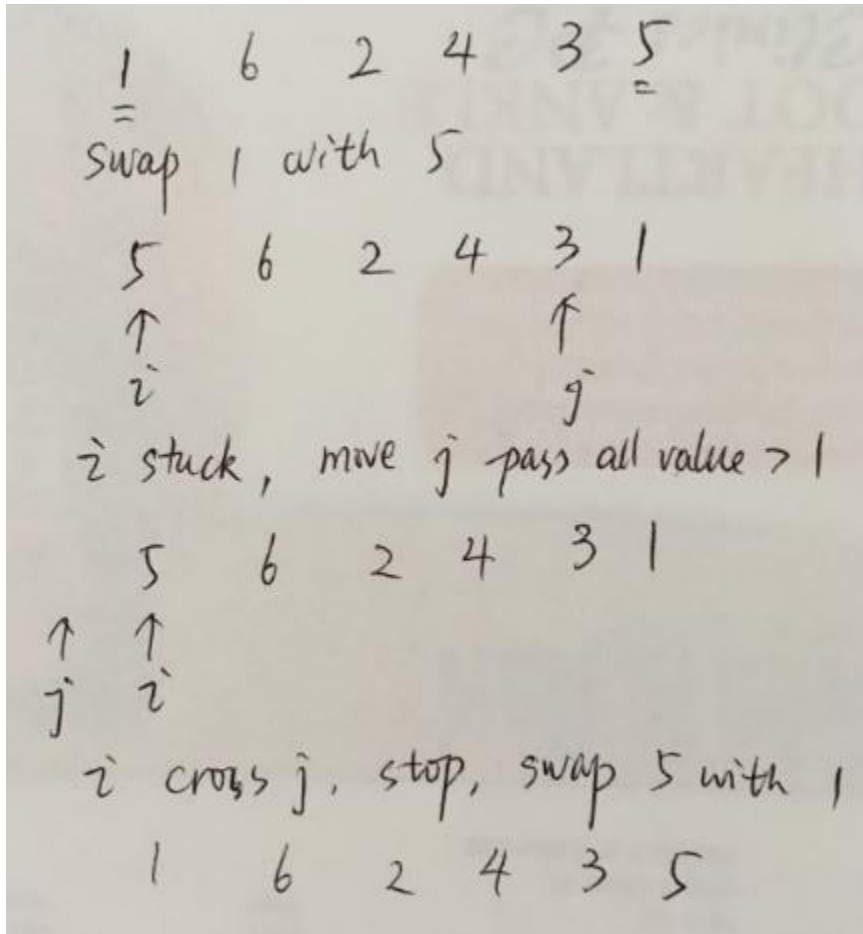 1 6 2 4 3 5
swap 1 with 5
5 6 2 4 3 1
↑ ↑
i j
i stuck, move j pass all value > 1
5 6 2 4 3 1
↑ ↑
j i
i cross j. stop, swap 5 with 1
1 6 2 4 3 5